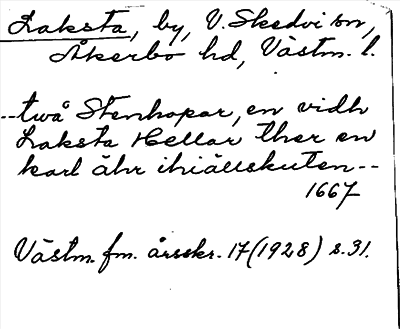 Laksta, by, V. Skedvi sn,
Åkerbo hd, Västm. l.
--twå Stenhopar, en vidh
Laksta Hellar ther en
karl ähr ihiällskuten--
1667
Västm. fm. årsskr. 17 (1928) s. 31.